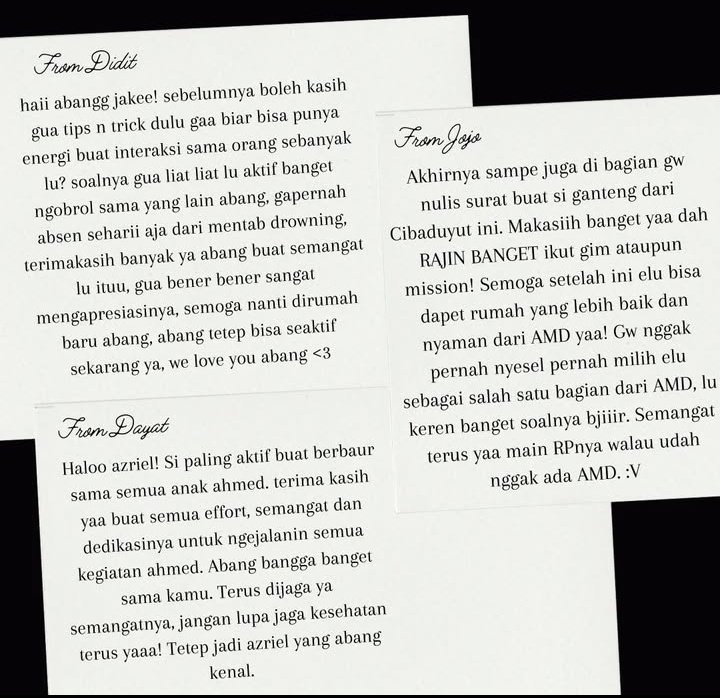 From Didit
haii abangg jakee! sebelumnya boleh kasih
gua tips n trick dulu gaa biar bisa punya
energi buat interaksi sama orang sebanyak
lu? soalnya gua liat liat lu aktif banget
ngobrol sama yang lain abang, gapernah
absen seharii aja dari mentab drowning,
terimakasih banyak ya abang buat semangat
lu ituu, gua bener bener sangat
mengapresiasinya, semoga nanti dirumah
baru abang, abang tetep bisa seaktif
sekarang ya, we love you abang <3
From Jojo
Akhirnya sampe juga di bagian gw
nulis surat buat si ganteng dari
Cibaduyut ini. Makasiih banget yaa dah
RAJIN BANGET ikut gim ataupun
mission! Semoga setelah ini elu bisa
dapet rumah yang lebih baik dan
nyaman dari AMD yaa! Gw nggak
pernah nyesel pernah milih elu
sebagai salah satu bagian dari AMD, lu
keren banget soalnya bjiiir. Semangat
terus yaa main RPnya walau udah
nggak ada AMD. :V
From Dayat
Haloo azriel! Si paling aktif buat berbaur
sama semua anak ahmed. terima kasih
yaa buat semua effort, semangat dan
dedikasinya untuk ngejalanin semua
kegiatan ahmed. Abang bangga banget
sama kamu. Terus dijaga ya
semangatnya, jangan lupa jaga kesehatan
terus yaaa! Tetep jadi azriel yang abang
kenal.